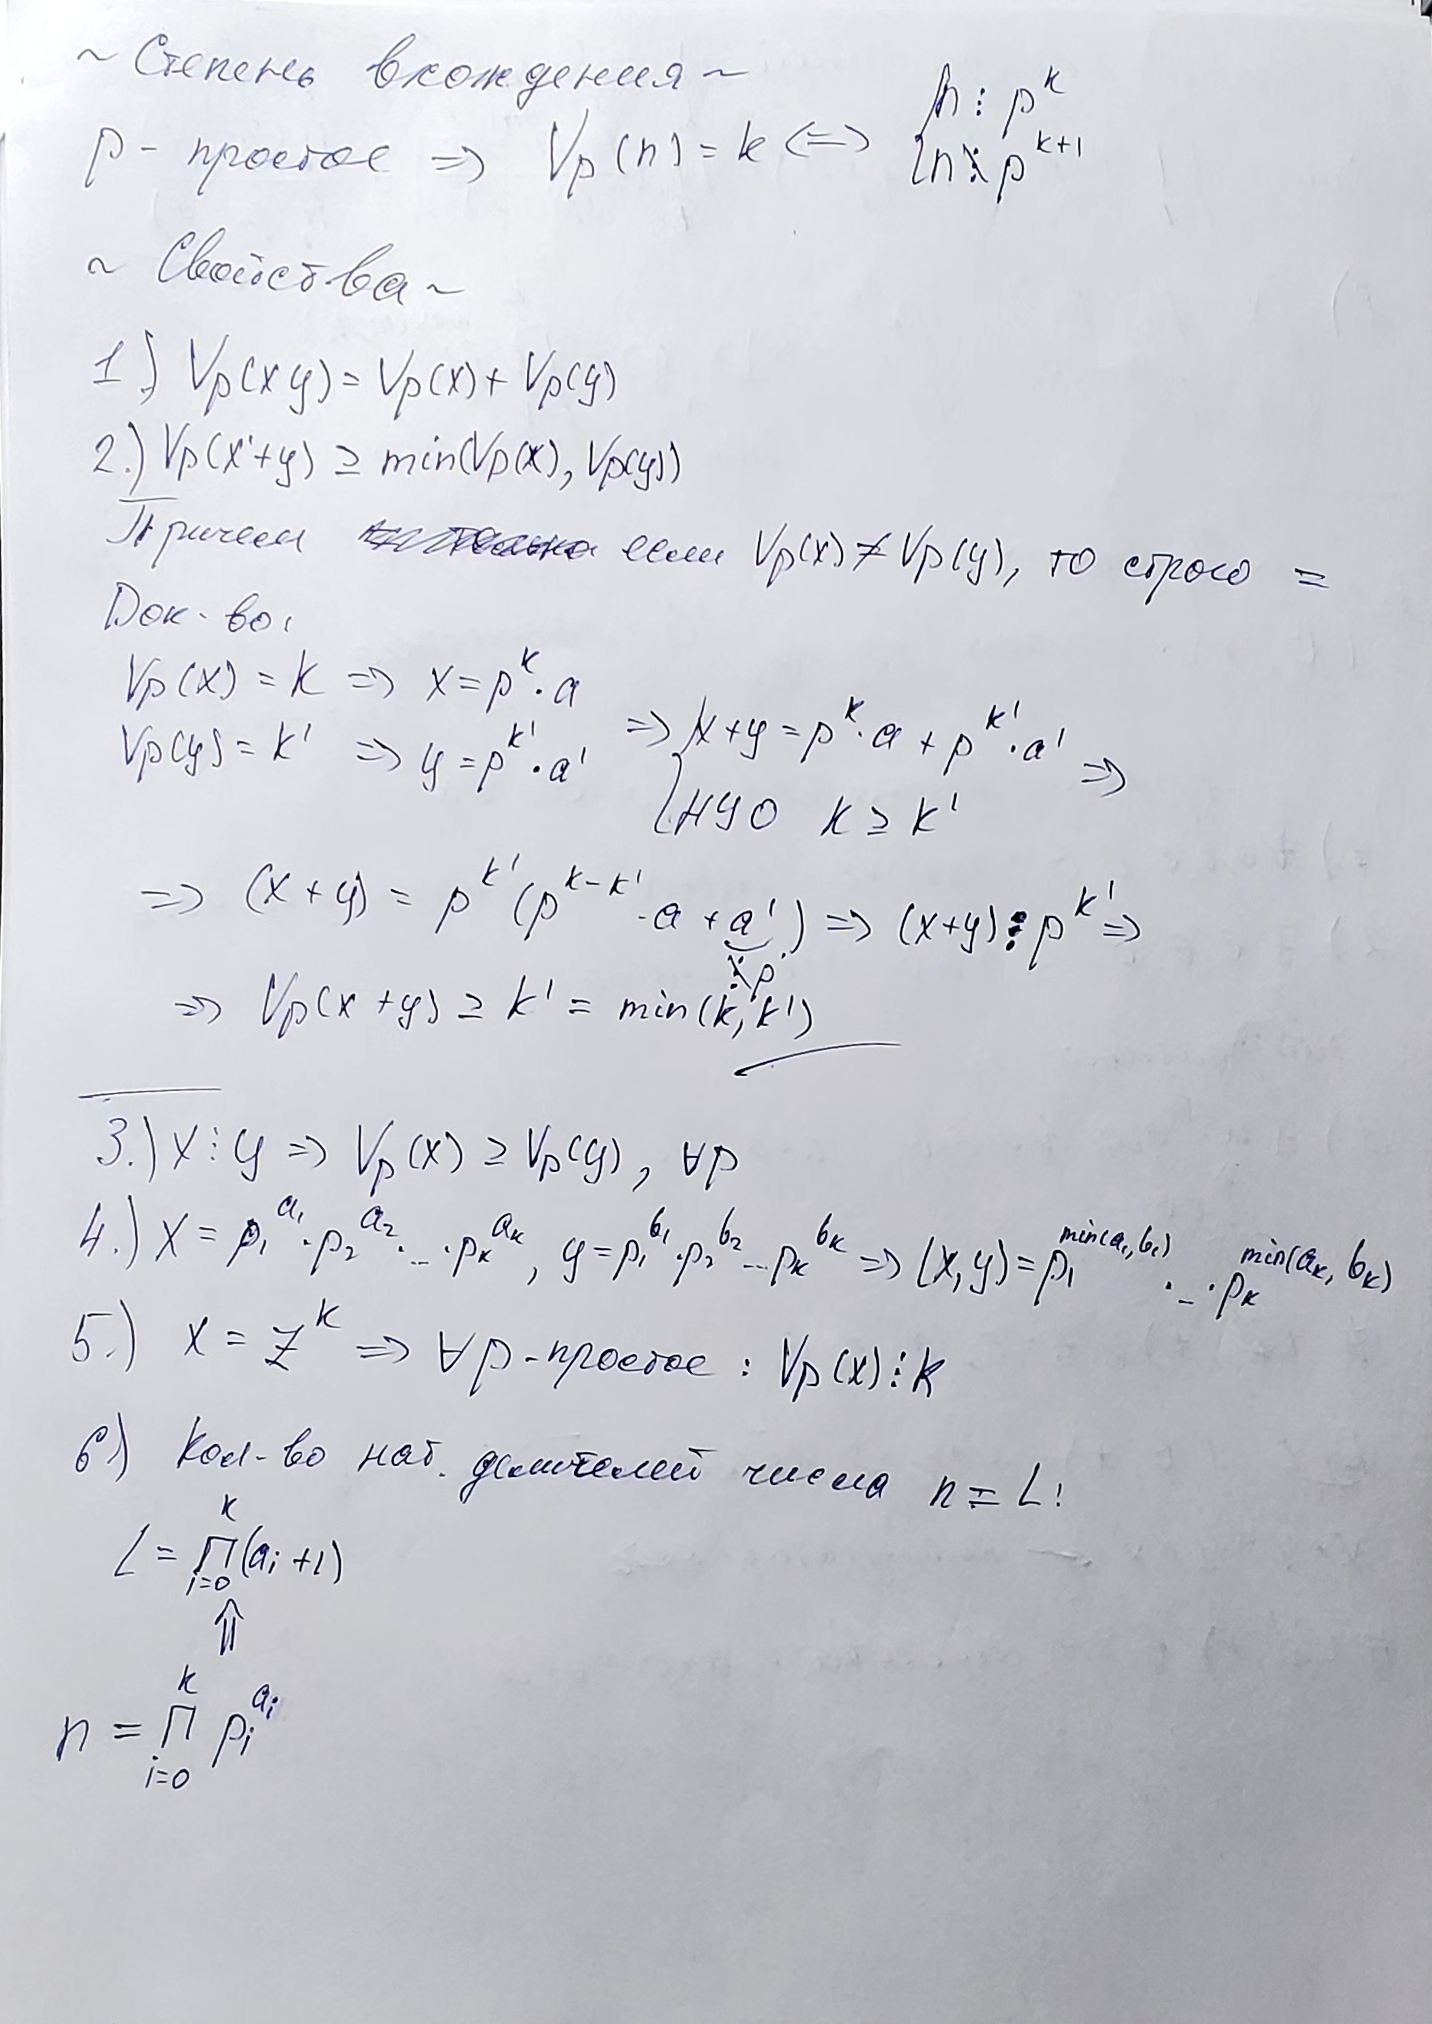 ~ Степень вхождения ~
p - простое => Vp(n) = k <=> { n ⋮ p^k
{ n ⋮̸ p^{k+1}
~ Свойства ~
1.) Vp(xy) = Vp(x) + Vp(y)
2.) Vp(x+y) ≥ min(Vp(x), Vp(y))
Причем если Vp(x) ≠ Vp(y), то строго =
Док-во:
Vp(x) = k => x = p^k · a
Vp(y) = k' => y = p^{k'} · a' => { x+y = p^k · a + p^{k'} · a' =>
{ НУО k ≥ k'
=> (x+y) = p^{k'} (p^{k-k'} · a + a') => (x+y) ⋮ p^{k'} =>
⋮̸ p
=> Vp(x+y) ≥ k' = min(k, k')
3.) x ⋮ y => Vp(x) ≥ Vp(y), ∀p
4.) x = p₁^{a₁} · p₂^{a₂} · ... · pₖ^{aₖ}, y = p₁^{b₁} · p₂^{b₂} ... pₖ^{bₖ} => (x,y) = p₁^{min(a₁,b₁)} · ... · pₖ^{min(aₖ, bₖ)}
5.) x = z^k => ∀p - простое : Vp(x) ⋮ k
6) Кол-во нат. делителей числа n = L:
k
L = ∏ (aᵢ + 1)
i=0
⇑
k
n = ∏ pᵢ^{aᵢ}
i=0